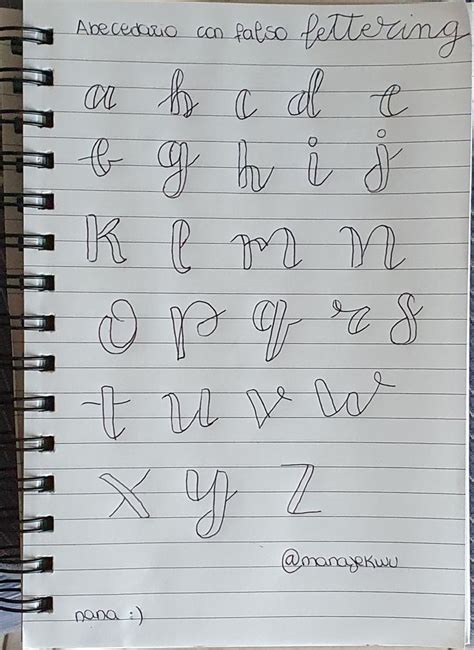 Abecedario con falso lettering
a b c d e
f g h i j
k l m n
o p q r s
t u v w
x y z
@manajekwu
nana :)